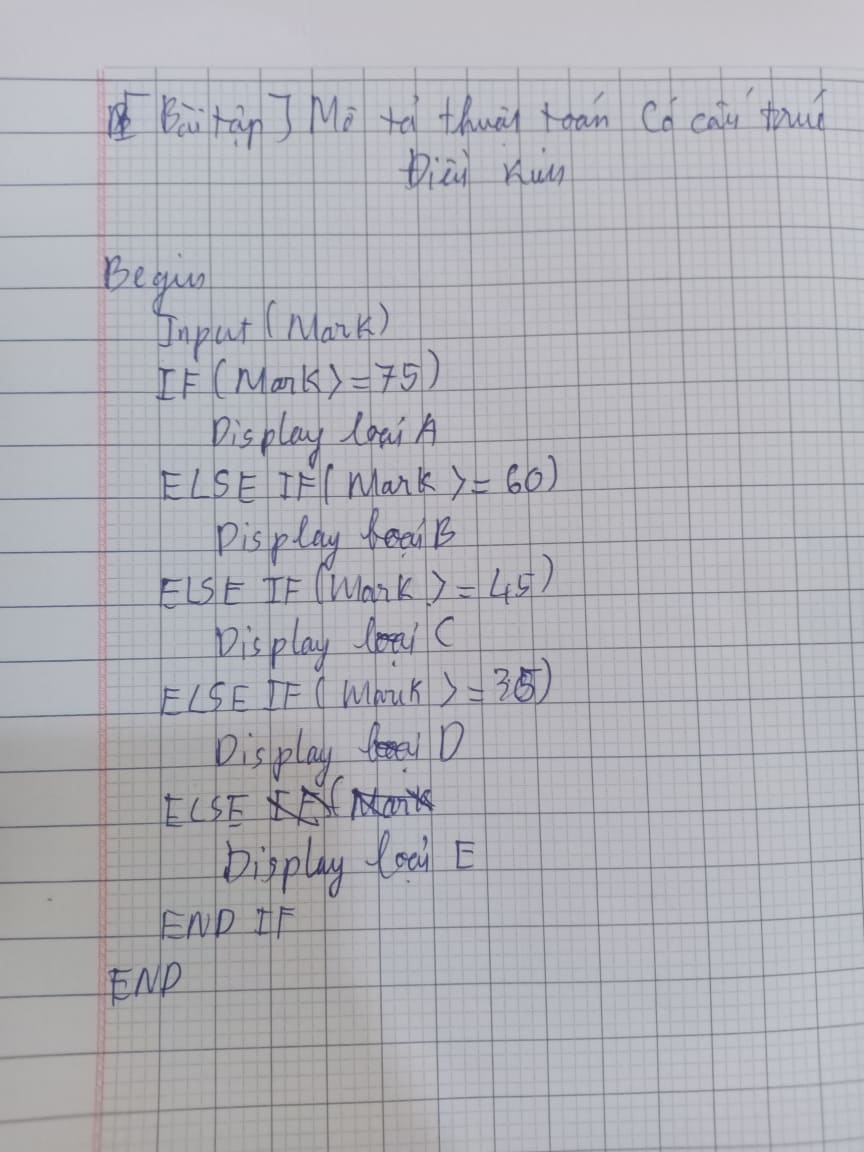 [Bài tập] Mô tả thuật toán có cấu trúc
Điều kiện
Begin
Input (Mark)
IF (Mark >= 75)
Display loại A
ELSE IF (Mark >= 60)
Display loại B
ELSE IF (Mark >= 45)
Display loại C
ELSE IF (Mark >= 35)
Display loại D
ELSE
Display loại E
END IF
END